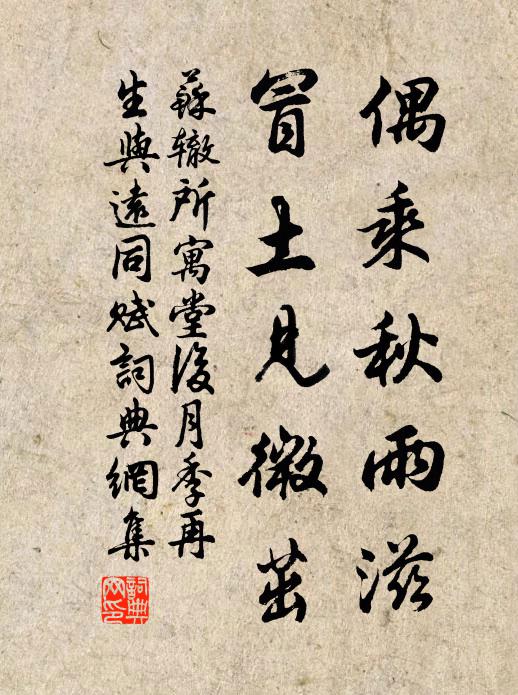 偶乘秋雨滋
冒土見微茁
蘇轍所寓堂後月季再
生與遠同賦詞典網集
詞典
网印